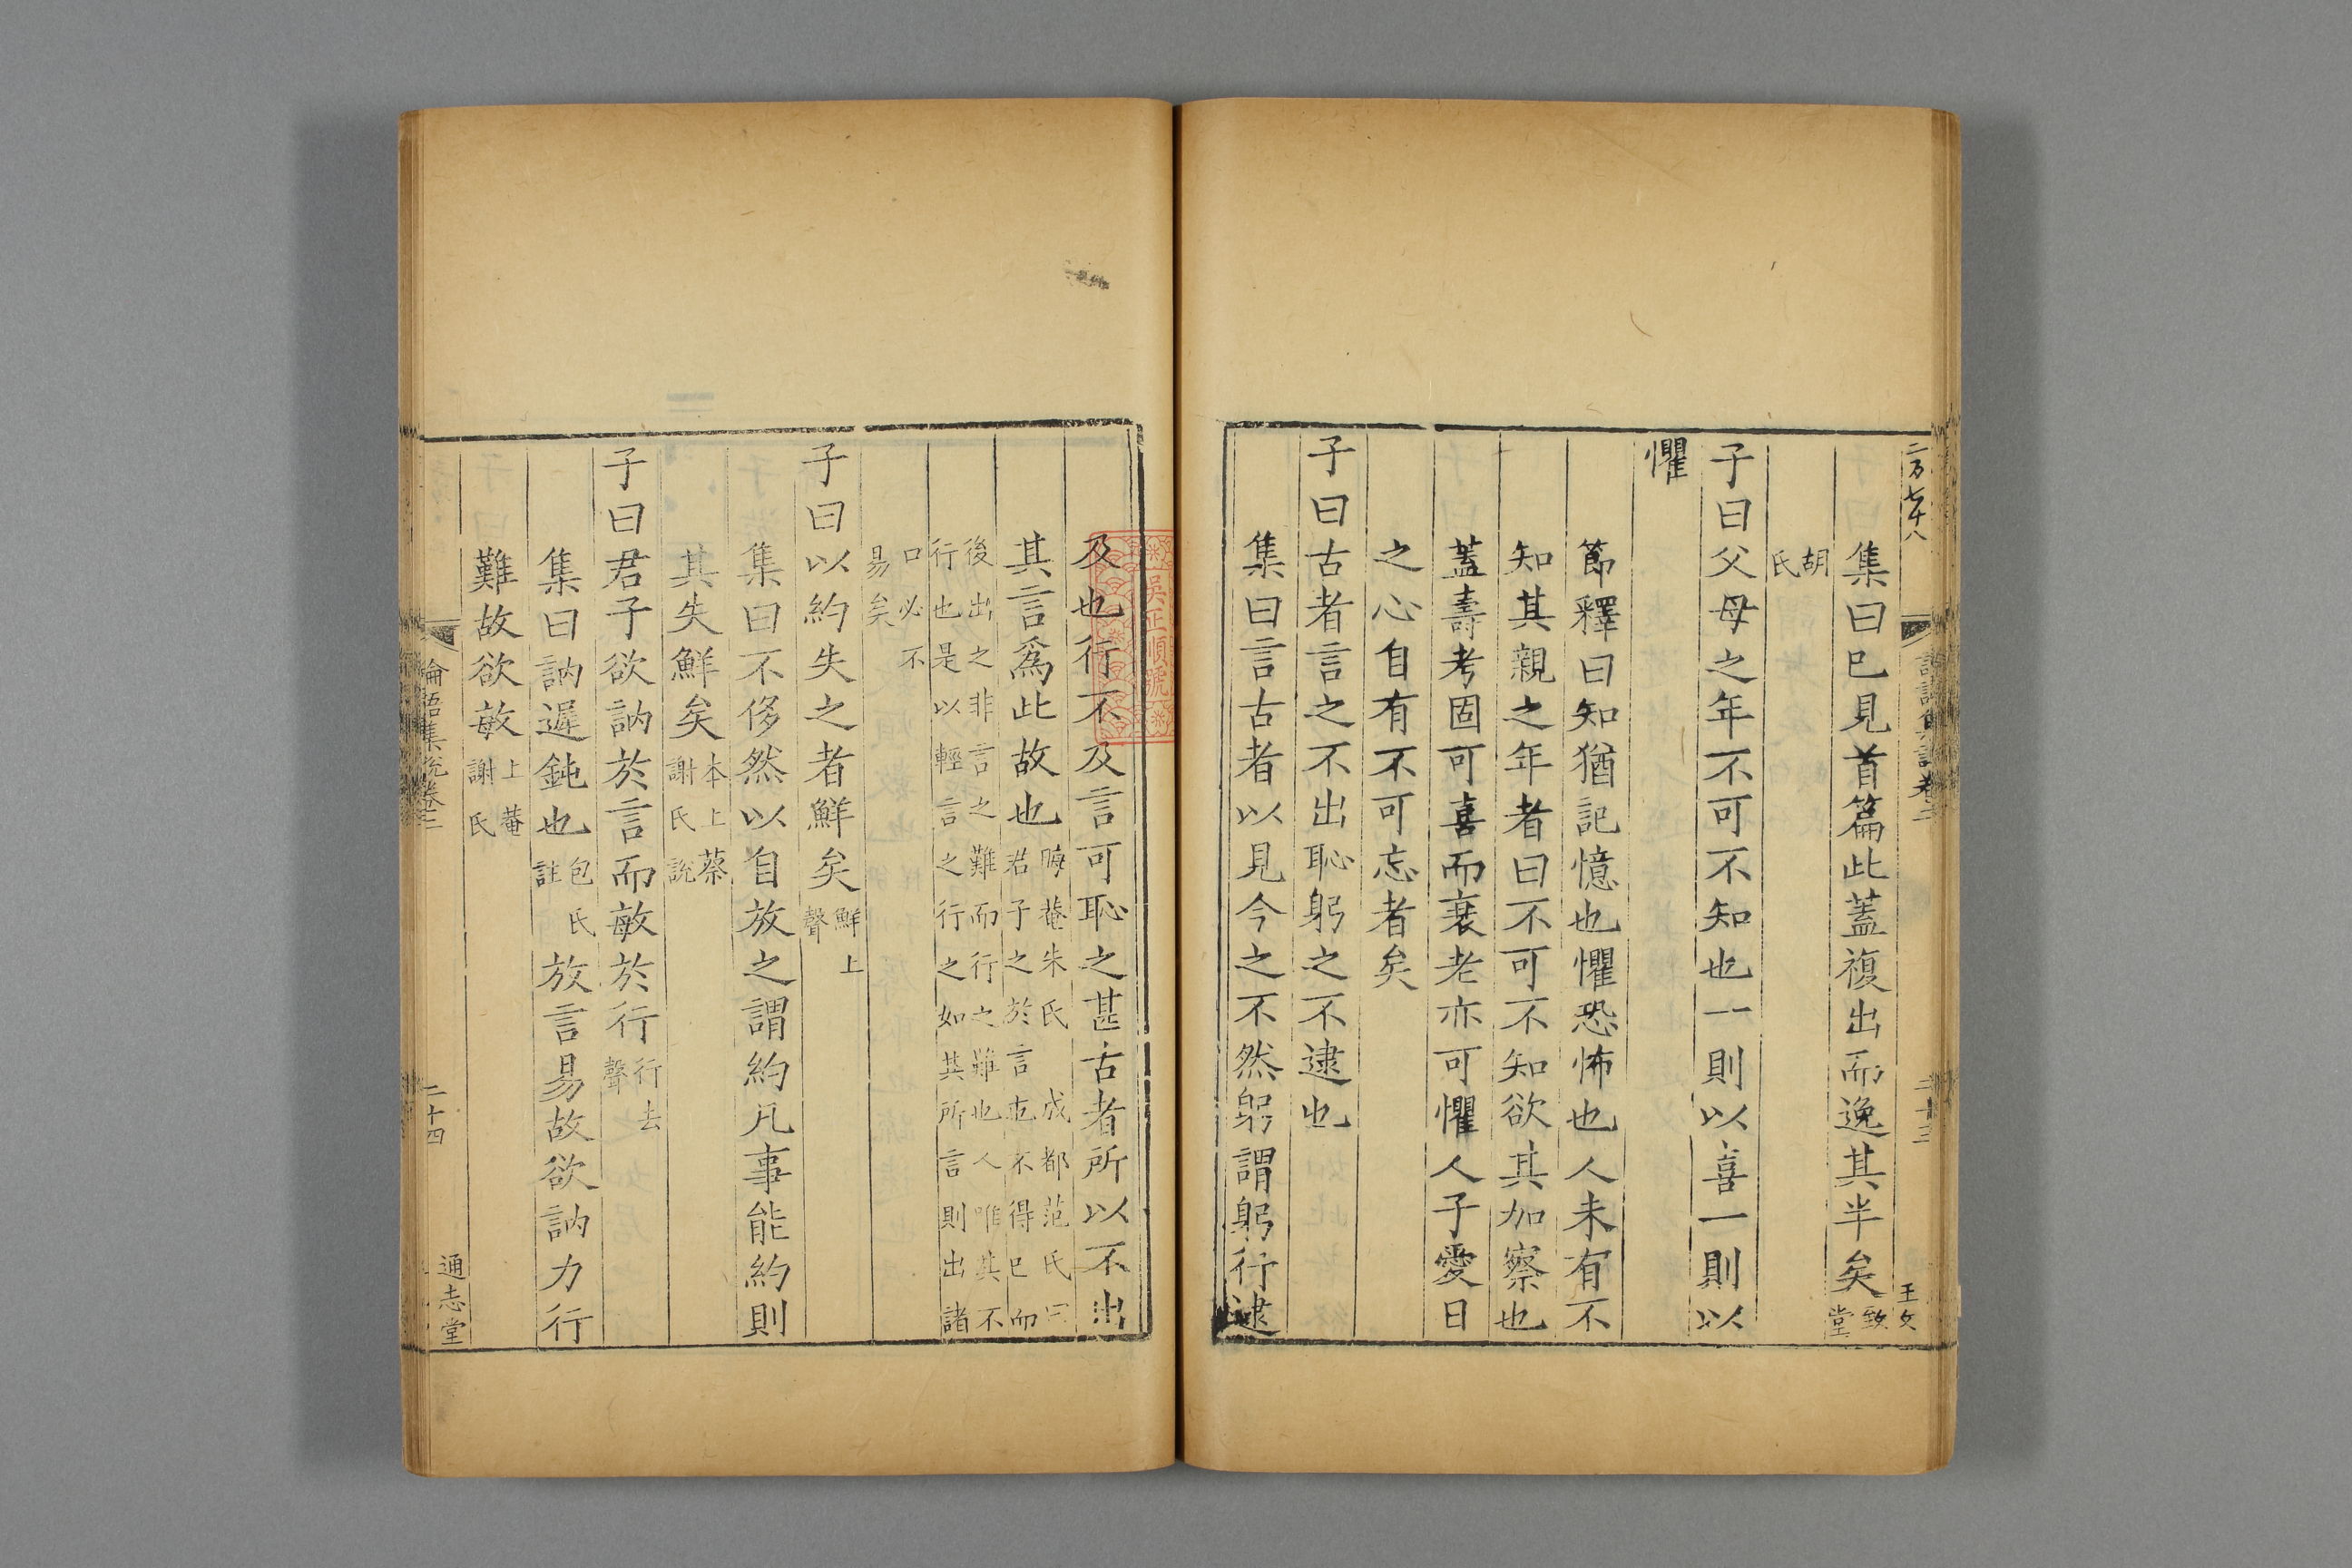 集曰巳見首篇此蓋複出而逸其半矣致堂
胡氏
子曰父母之年不可不知也一則以喜一則以
懼
節釋曰知猶記憶也懼恐怖也人未有不
知其親之年者曰不可不知欲其加察也
蓋壽考固可喜而衰老亦可懼人子愛日
之心自有不可忘者矣
子曰古者言之不出恥躬之不逮也
集曰言古者以見今之不然躬謂躬行逮
及也行不及言可恥之甚古者所以不出
其言爲此故也晦菴朱氏 成都范氏曰君子之於言也不得已而
後出之非言之難而行之難也人唯其不行也是以輕言之行之如其所言則出諸
口必不易矣
子曰以約失之者鮮矣鮮上聲
集曰不侈然以自放之謂約凡事能約則
其失鮮矣本上蔡謝氏說
子曰君子欲訥於言而敏於行行去聲
集曰訥遲鈍也包氏註放言易故欲訥力行
難故欲敏上蔡謝氏
論語集說卷二
二十四
通志堂
吳正順號